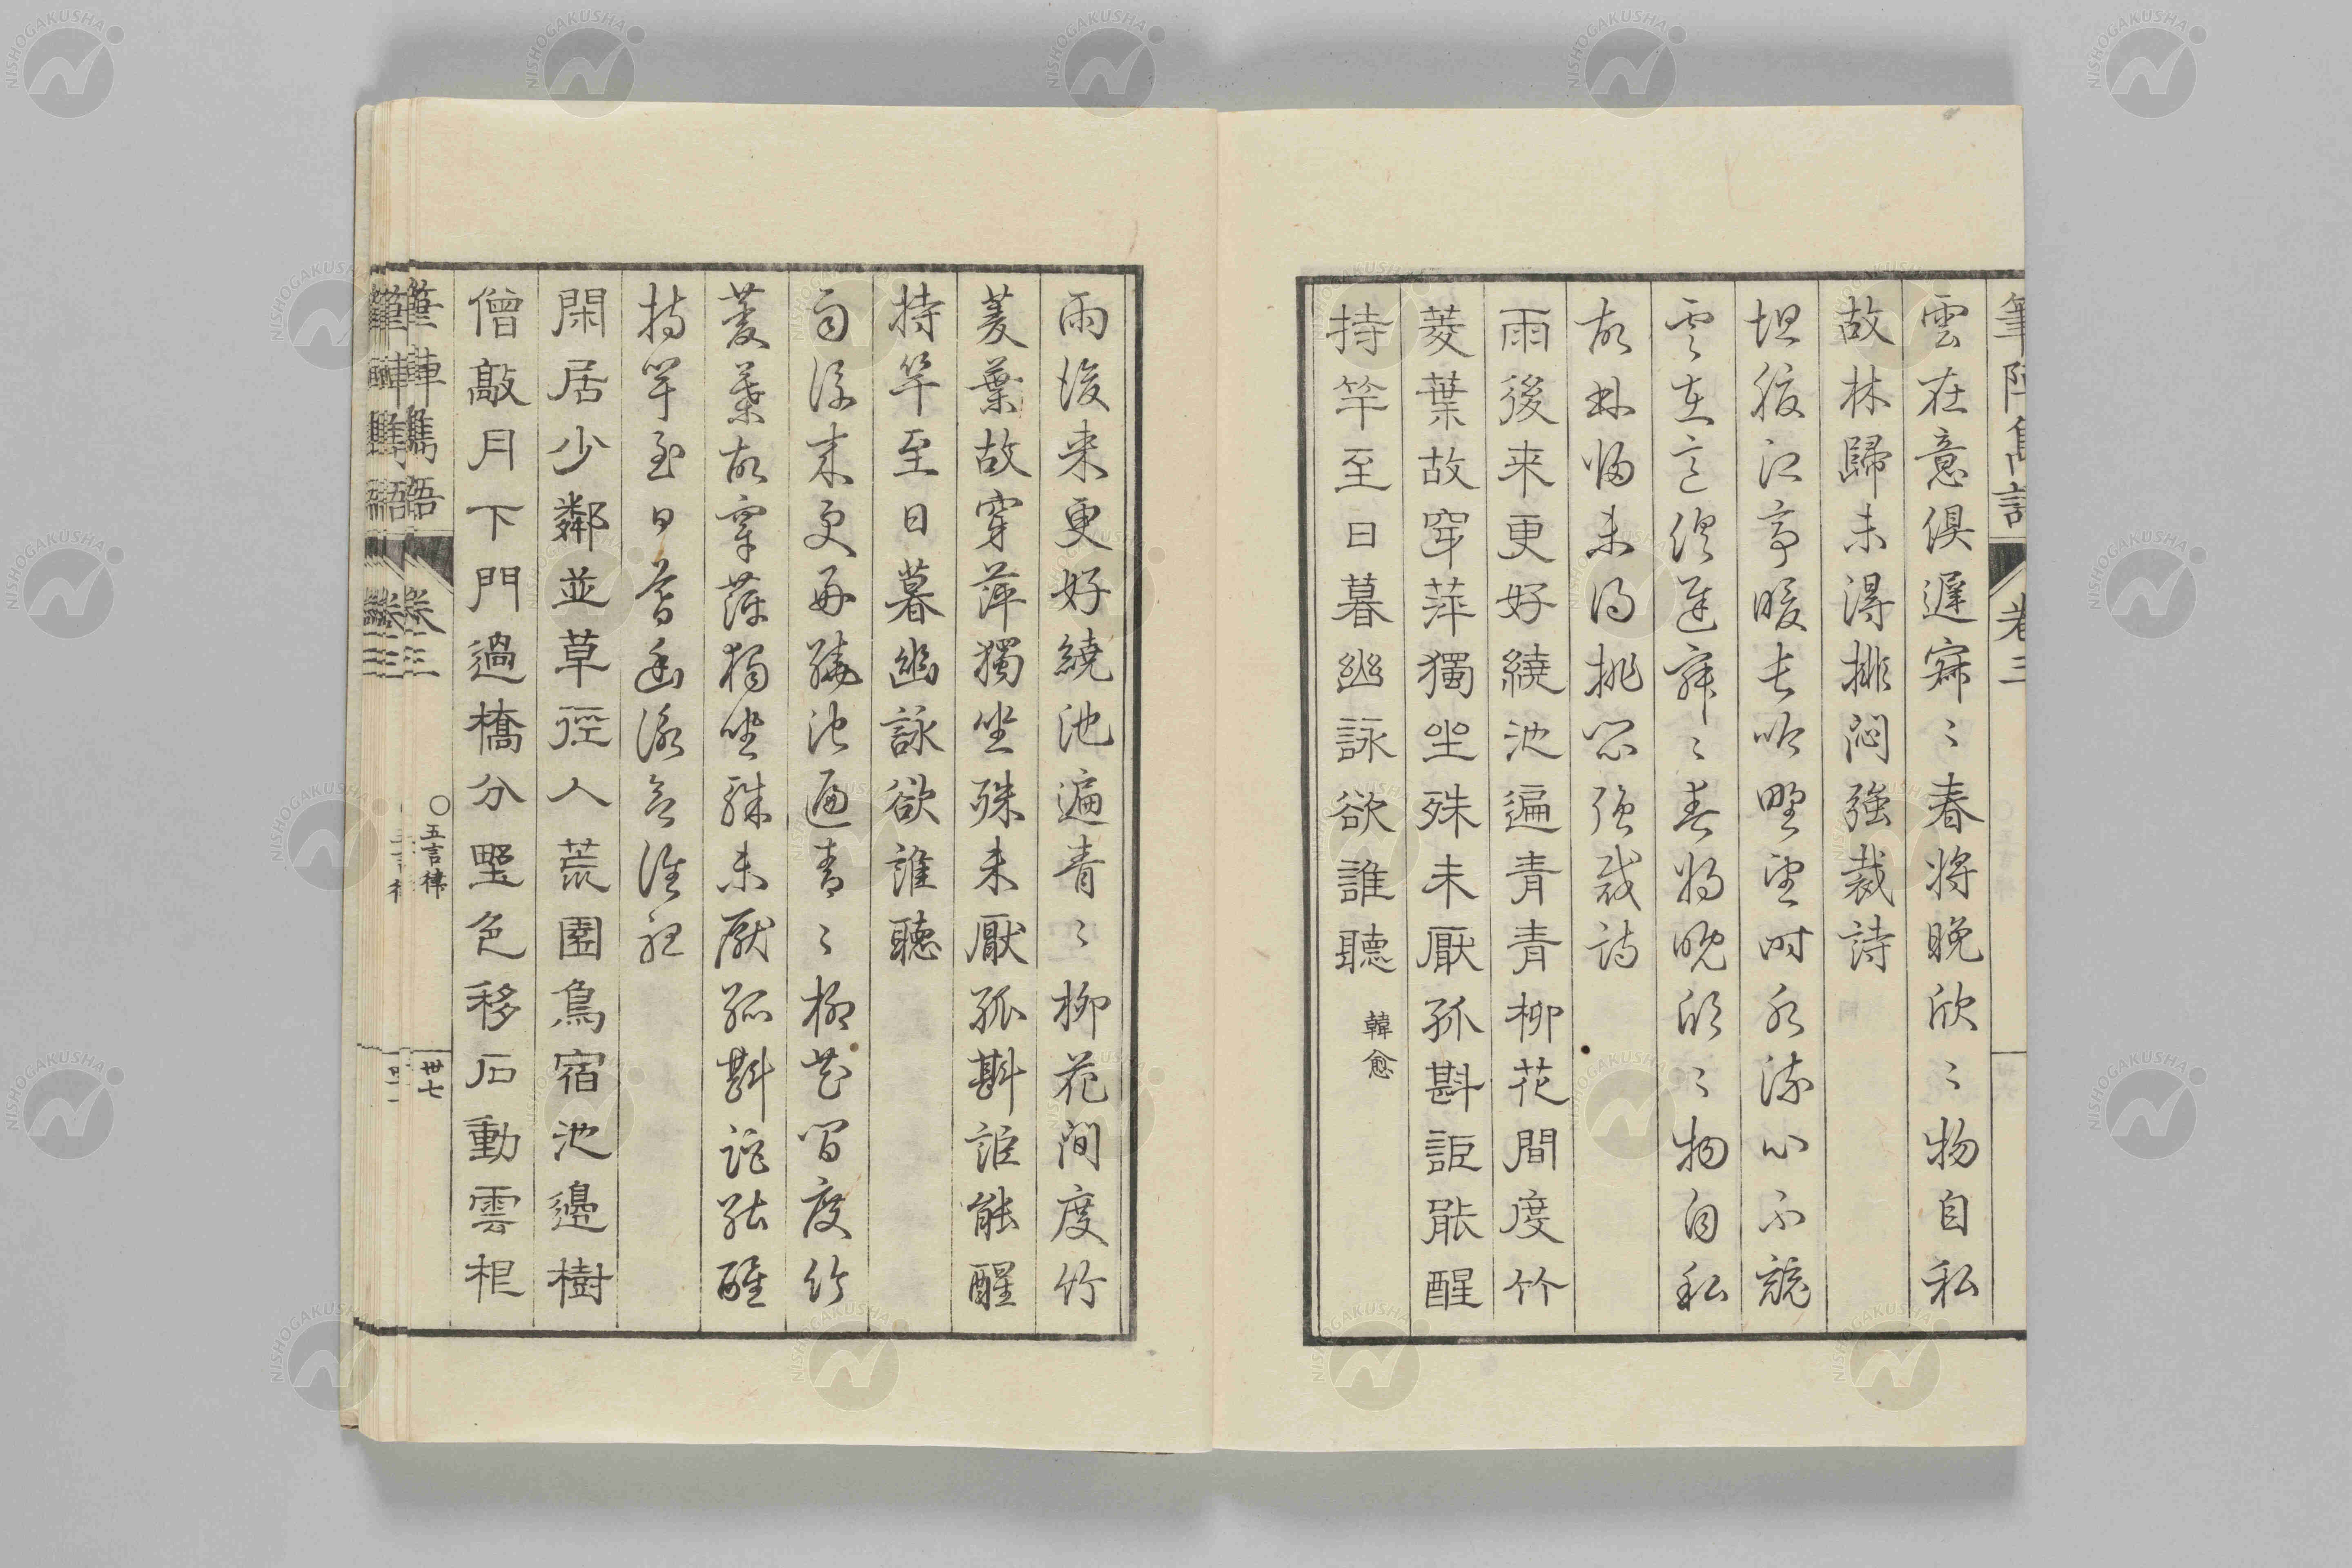 筆陣雋語 卷三
雲在意俱遲寂〻春将晚欣〻物自私
故林歸未得排悶強裁詩
坦腹江亭暖長吟野望时水流心不競
雲在意俱遲寂〻春将晚欣〻物自私
故林歸未得排悶強裁詩
雨後来更好繞池遍青青柳花間度竹
菱葉故穿萍獨坐殊未厭孤斟詎能醒
持竿至日暮幽詠欲誰聽 韓愈
雨後来更好繞池遍青〻柳花間度竹
菱葉故穿萍獨坐殊未厭孤斟詎能醒
持竿至日暮幽詠欲誰聽
雨後来更好繞池遍青〻柳花間度竹
菱葉故穿萍獨坐殊未厭孤斟詎能醒
持竿至日暮幽詠欲誰聽
閑居少鄰並草徑人荒園鳥宿池邊樹
僧敲月下門過橋分野色移石動雲根
筆陣雋語 卷三 〇五言律 卅七
NISHOGAKUSHA